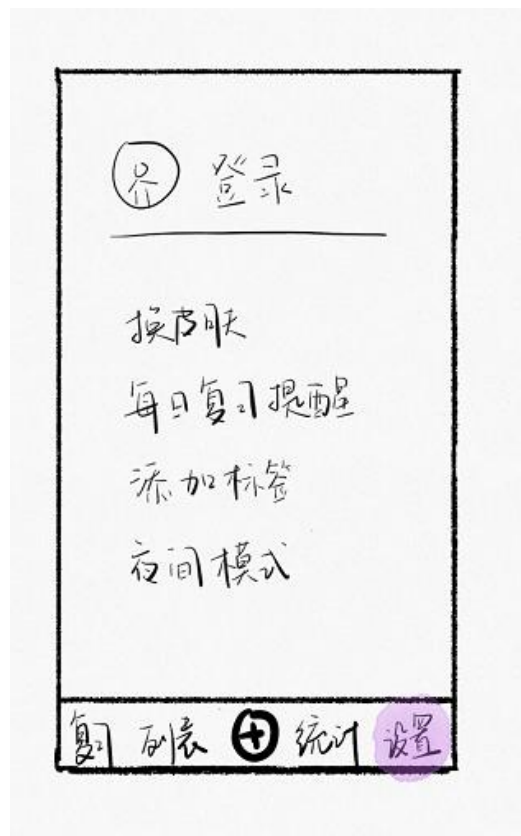 登录
换皮肤
每日复习提醒
添加标签
夜间模式
复习 列表 + 统计 设置